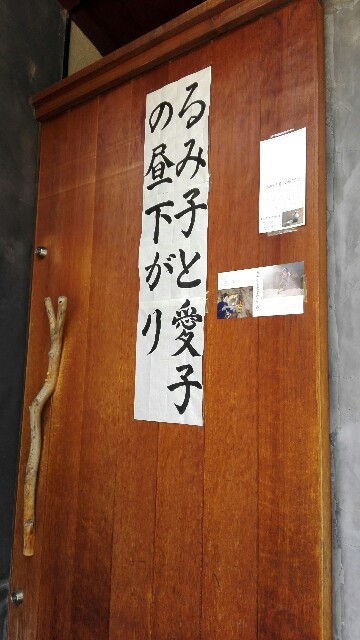 るみ子と愛子
の昼下がり